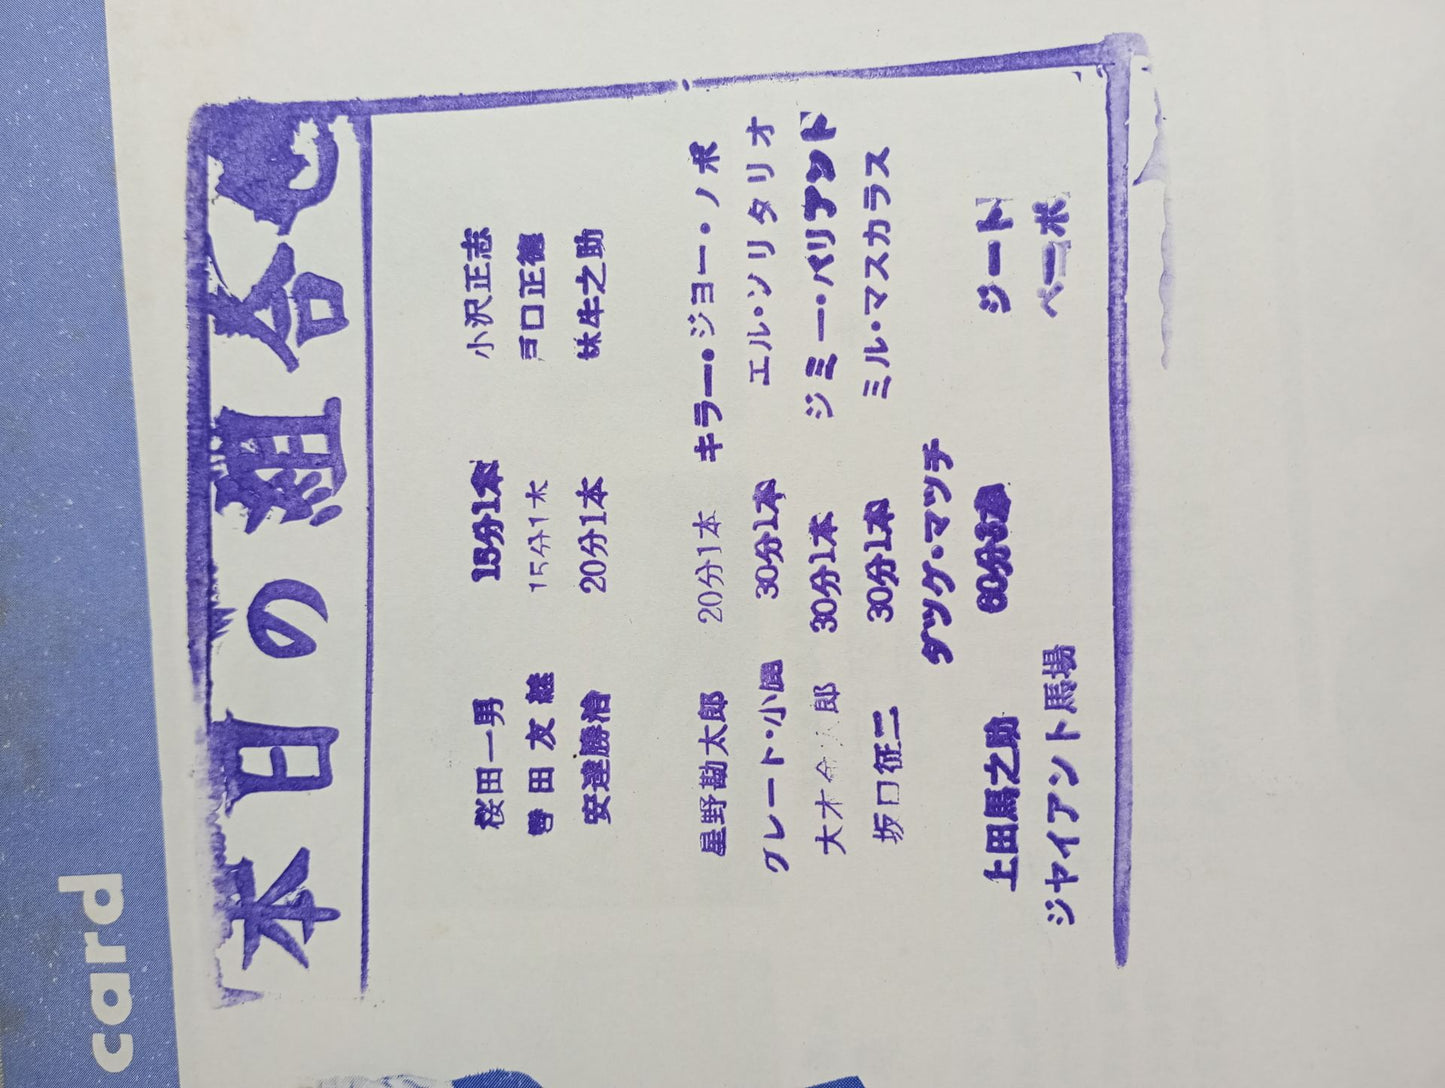 card
本日の組合せ
桜田一男 15分1本 小沢正志
轡田友継 15分1本 戸口正徳
安達勝治 20分1本 林牛之助
星野勘太郎 20分1本 キラー・ジョー・ノボ
グレート・小鹿 30分1本 エル・ソリタリオ
大木金太郎 30分1本 ジミー・バリアント
坂口征二 30分1本 ミル・マスカラス
タッグ・マッチ
上田馬之助 60分3本 ジート
ジャイアント馬場 ベーポ